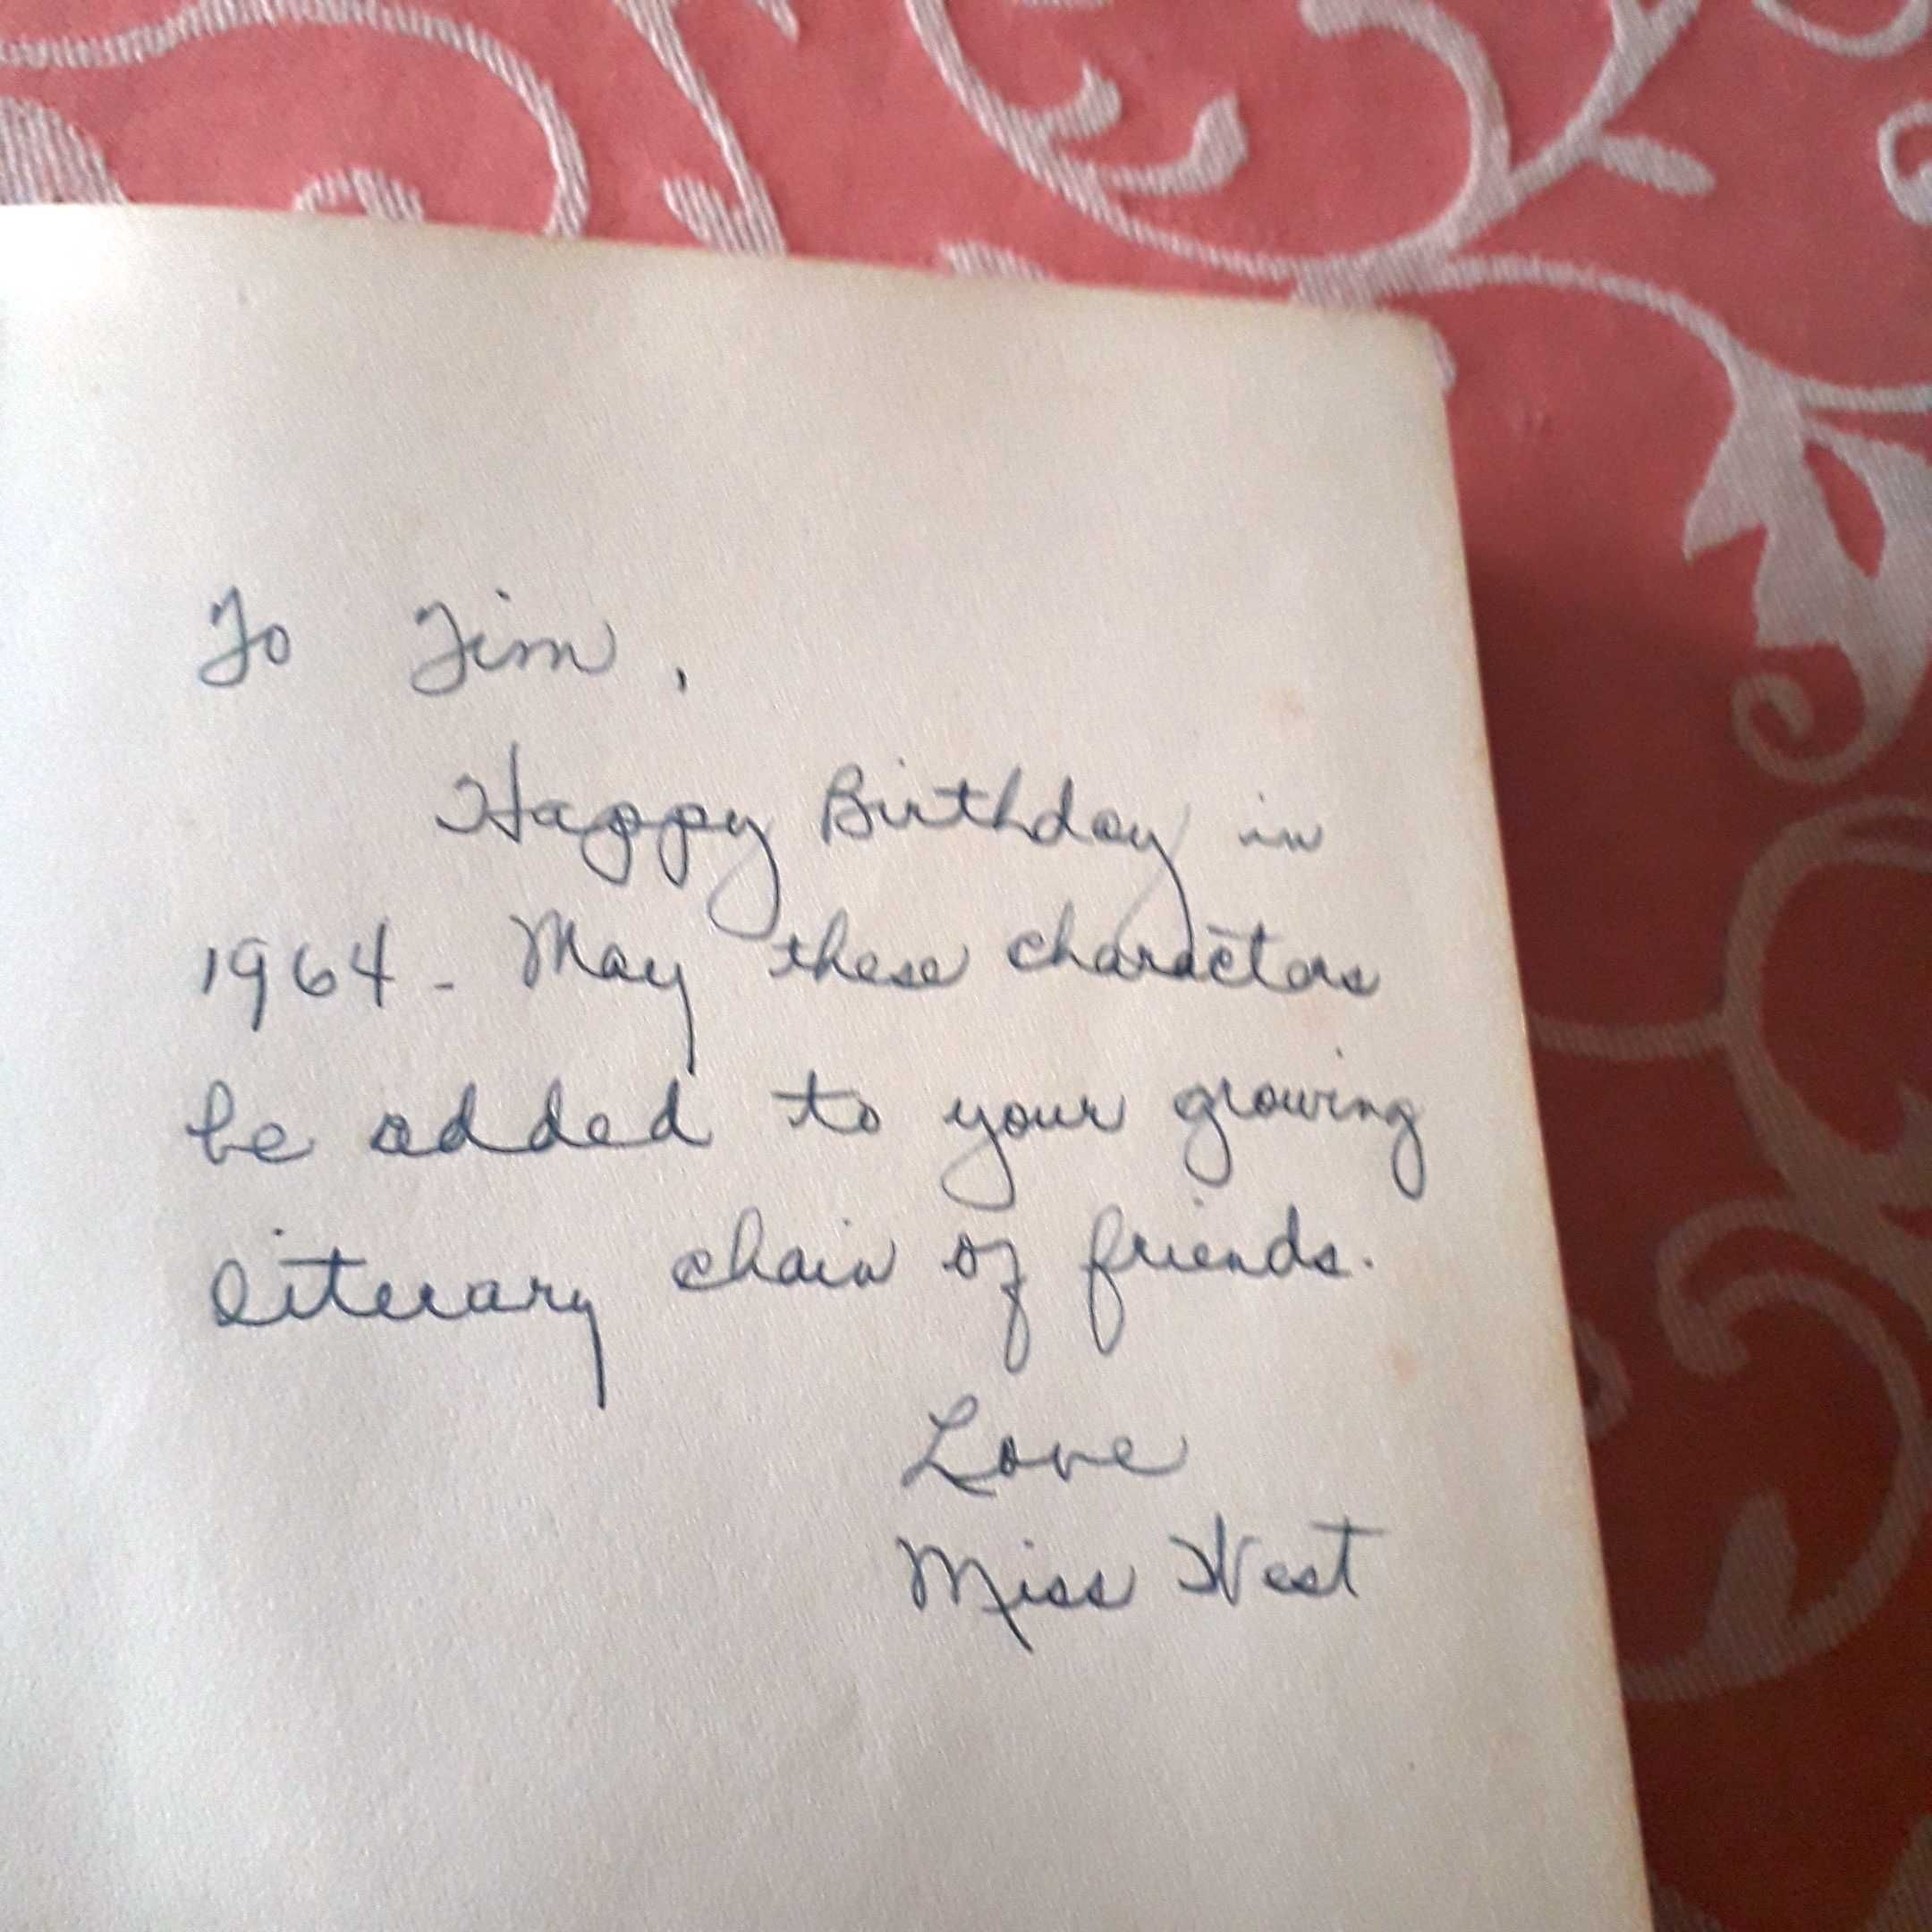 To Tim,
Happy Birthday in
1964 - May these characters
be added to your growing
literary chain of friends.
Love
Miss West